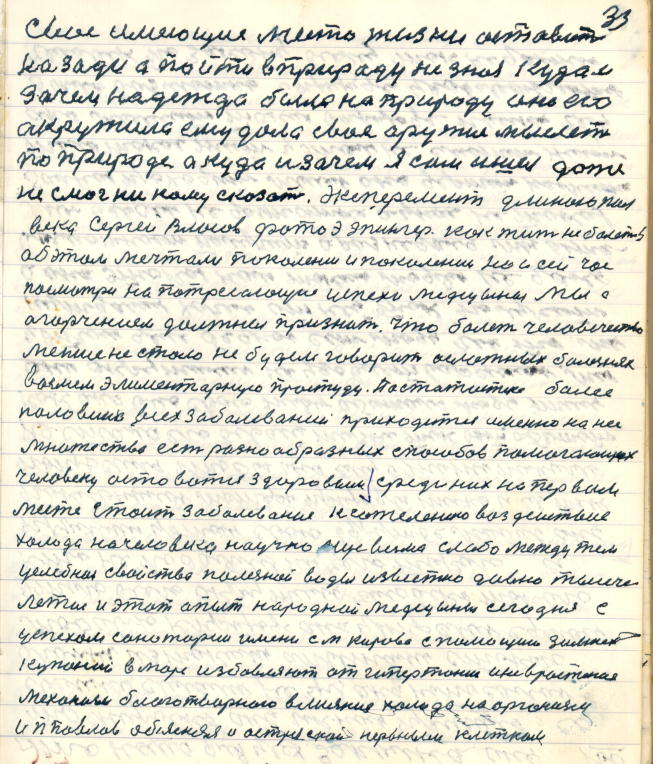 33
свое имеющие место жизни оставит
на зади а пойти в природу не зная куда и
зачем надежда была на природу она его
окружила ему дола свое аружия мыслет
по природе а куда и зачем я сам ишел даже
не смог ни кому сказат. Эксперемент длиною пол
века Сергей Власов фото Э Эпингер. как жит не болеть
об этом мечтали поколении и поколении но и сей час
посмотри на потресающие успехи медецыны мы с
агорчением должны признат. что болет человечество
меньше не стало не будем говорит о сложных болезнях
возмем элиментарную простуду. По статистике более
половины всех заболеваний приходится именно на нее
множество ест разнообразных способов помогающих
человеку оставатся здоровым среди них на первом
месте стоит заболевание к сожелению воздействие
холода на человека научно еще весма слабо между тем
целебная свойства полезной воды известно давно тысяче
летия и этот опыт народной медецыны сегодня с
успехом санатории имени с м кирова с помощии зимней
купаний в море избовляют от гипертонии и неврастения
механизм благотворного влияние холода на организму
И П павлов объясняя о встряской нервным клеткам